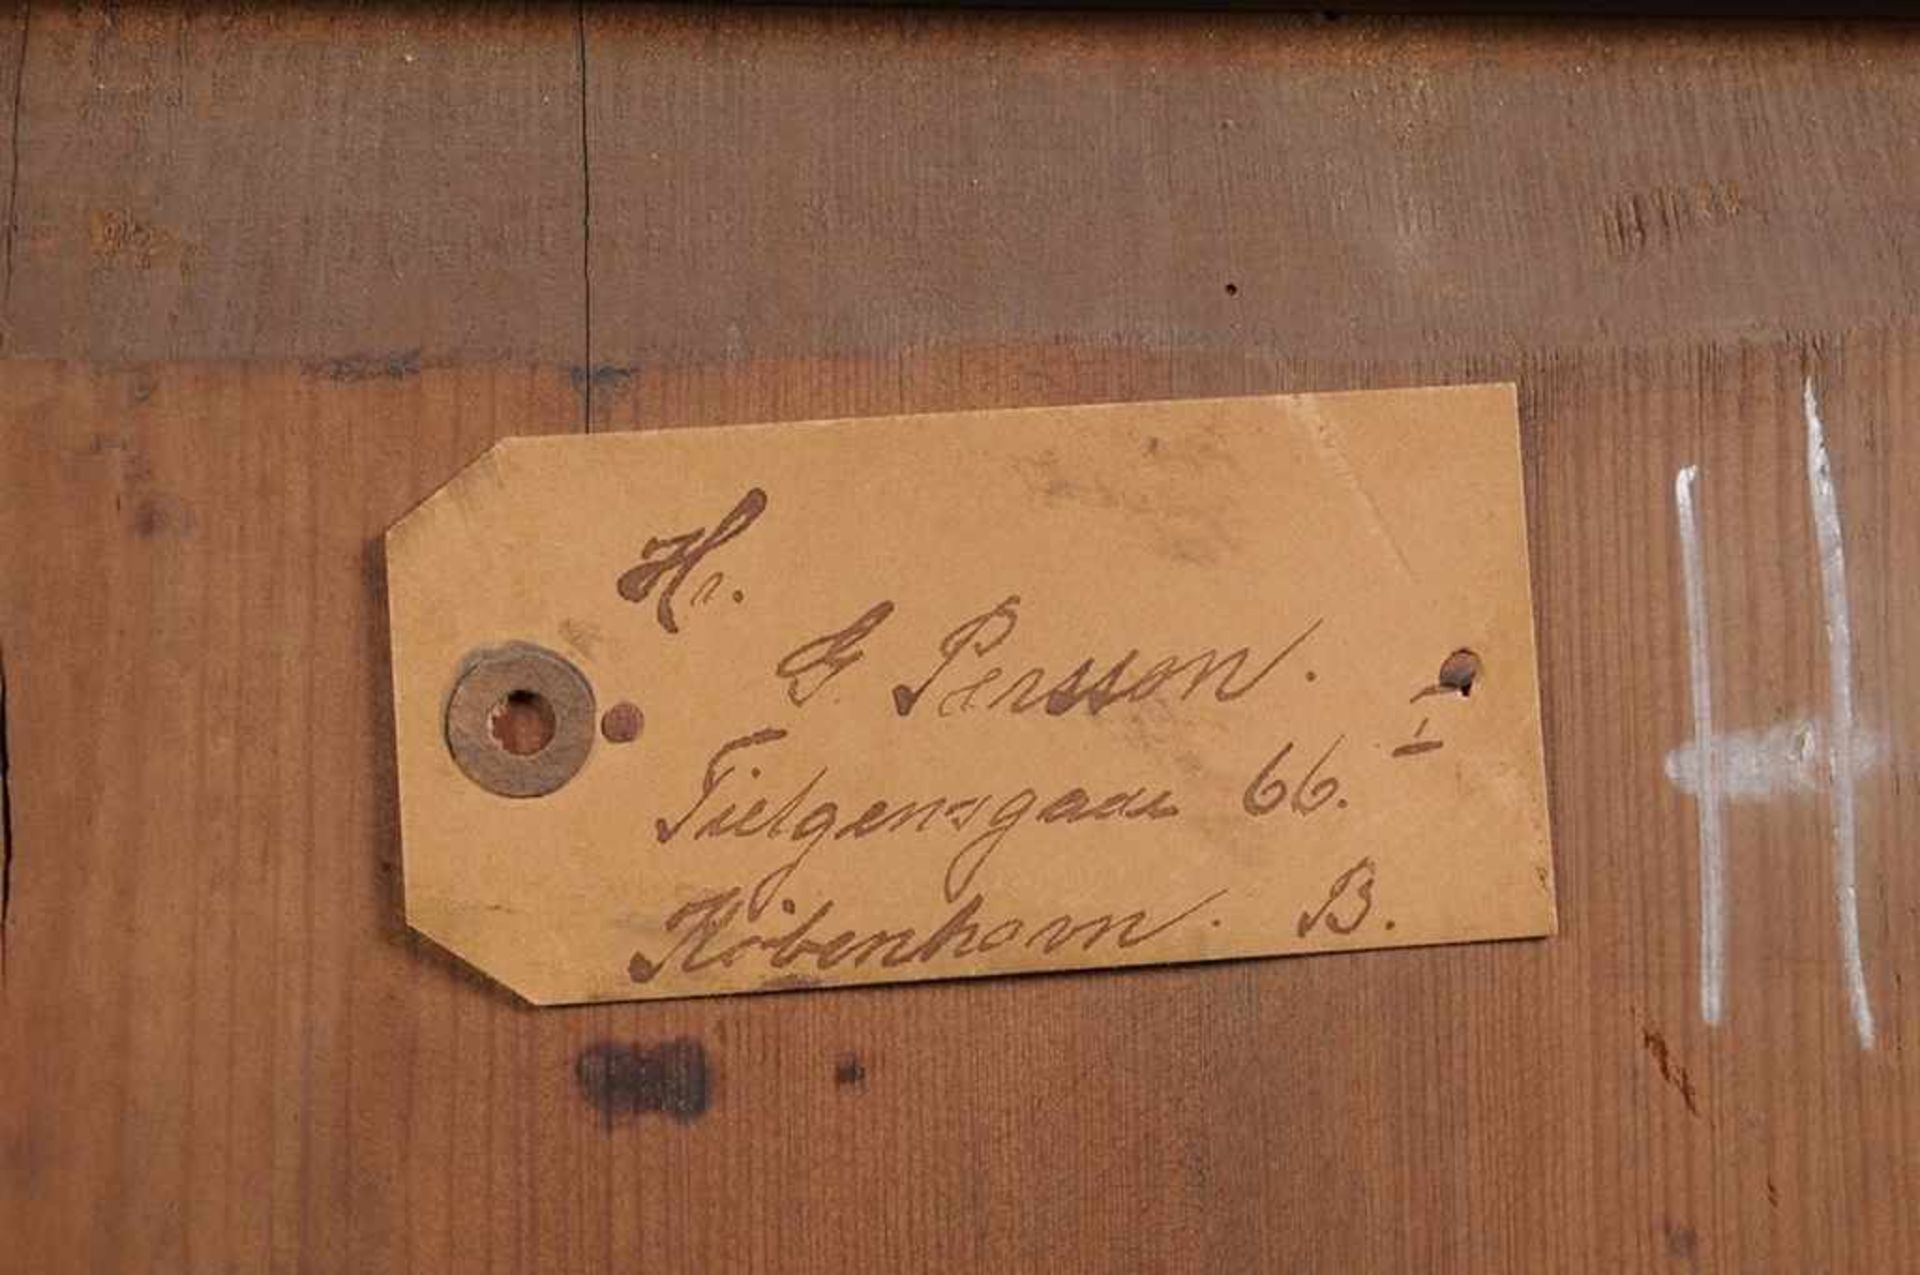 Hr.
G. Persson.
Tietgensgade 66. I
København. B.
H